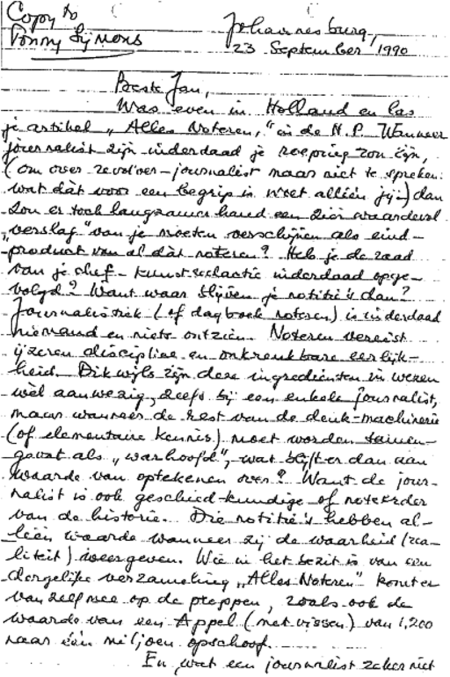 Copy to
Ponny Sijmons
Johannesburg,
23 September 1990
Beste Jan,
Was even in Holland en las
je artikel „Alles Noteren," in de H.P. Wanneer
journalist zijn inderdaad je roeping zou zijn,
(om over revolver-journalist maar niet te spreken:
wat dát voor een begrip is weet alléén jij-) dan
zou er toch langzamerhand een zeer waardevol
„verslag" van je moeten verschijnen als eind-
product van al dàt noteren? Heb je de raad
van je chef-kunstredactie inderdaad opge-
volgd? Want waar blijven je notitie's dan?
Journalistiek (of dagboek noteren) is inderdaad
niemand en niets ontzien. Noteren vereist
ijzeren discipline en onkreukbare eerlijk-
heid. Dikwijls zijn deze ingrediënten in wezen
wèl aanwezig, zelfs bij een enkele journalist,
maar wanneer de rest van de denk-machinerie
(of elementaire kennis) moet worden samen-
gevat als „warhoofd", wat blijft er dan aan
waarde van optekenen over? Want de jour-
nalist is ook geschied-kundige of
van de historie. Die notitie's hebben al-
léén waarde wanneer zij de waarheid (rea-
liteit) weergeven. Wie in het bezit is van een
dergelijke verzameling „Alles Noteren" komt er
vanzelf mee op de proppen, zoals ook de
waarde van een Appel (met vissen) van 1,200
naar één miljoen opschoof.
En wat een journalist zeker niet